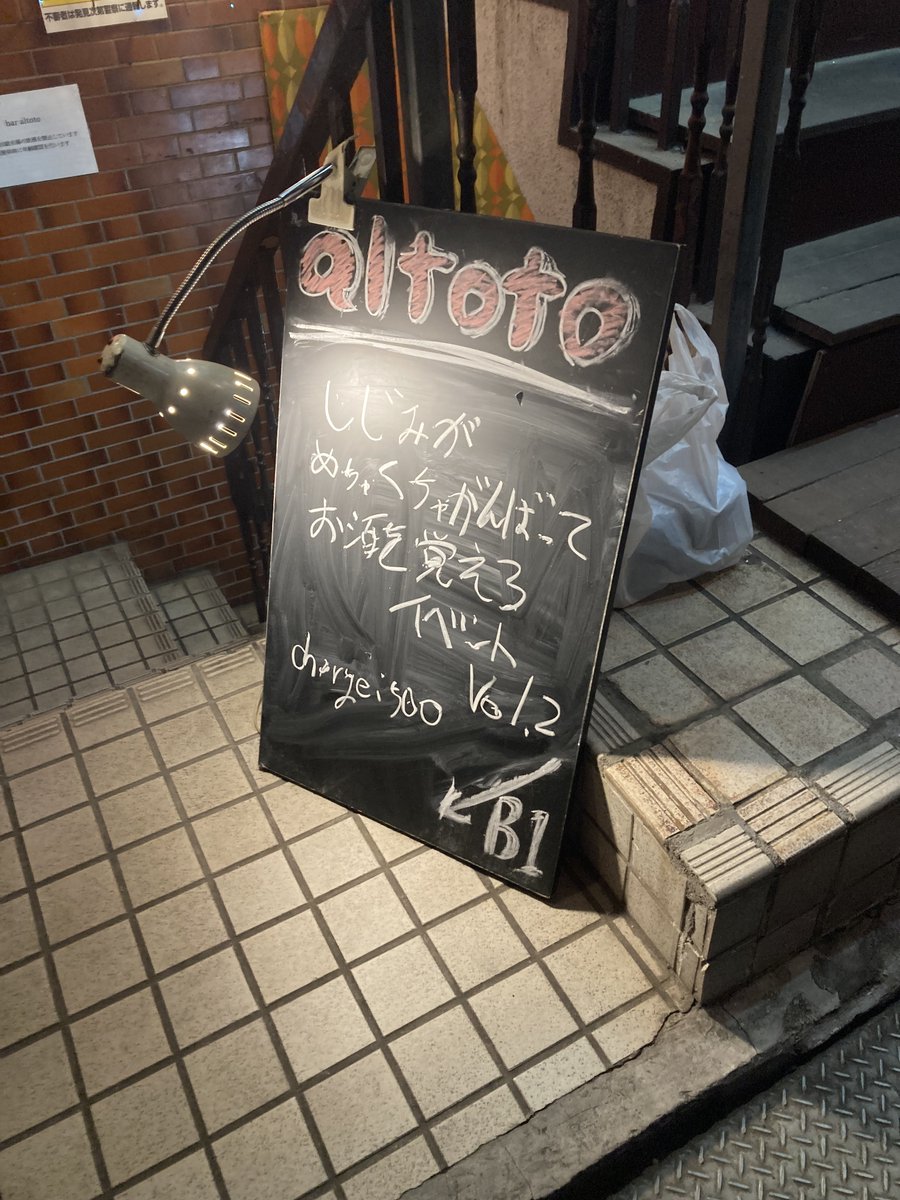 不審者は発見次第警察に通報します。
bar altoto
altoto
しじみが
めちゃくちゃがんばって
お酒を覚えろ
イベント
Vol.2
charge:500
B1